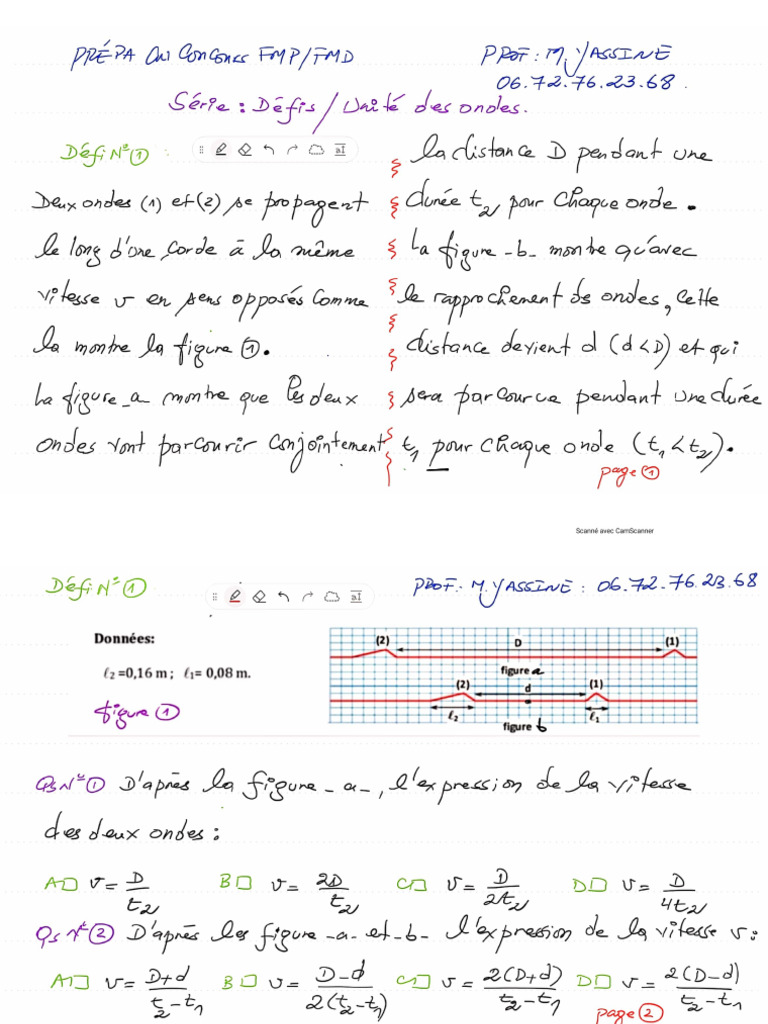 PRÉPA Au Concours FMP/FMD
PROF: M. YASSINE
06.72.76.23.68.
Série: Défis/Unité des ondes.
Défi N° ① :
Deux ondes (1) et (2) se propagent
le long d'une corde à la même
vitesse v en sens opposés comme
la montre la figure ①.
La figure_a montre que les deux
ondes vont parcourir conjointement
la distance D pendant une
durée t2 pour chaque onde.
La figure -b- montre qu'avec
le rapprochement des ondes, cette
distance devient d (d<D) et qui
sera parcourue pendant une durée
t1 pour chaque onde (t1<t2).
page ①
Scanné avec CamScanner
Défi N° ①
PROF: M. YASSINE : 06.72.76.23.68
Données:
ℓ2 =0,16 m ; ℓ1= 0,08 m.
figure ①
(2) D (1)
figure a
(2) d (1)
ℓ2 ℓ1
figure b
Qs N° ① D'après la figure -a-, l'expression de la vitesse
des deux ondes :
A□ v = D/t2 B□ v = 2D/t2 C□ v = D/2t2 D□ v = D/4t2
Qs N° ② D'après les figure -a- et -b- l'expression de la vitesse v :
A□ v = D+d/t2-t1 B□ v = D-d/2(t2-t1) C□ v = 2(D+d)/t2-t1 D□ v = 2(D-d)/t2-t1
page ②